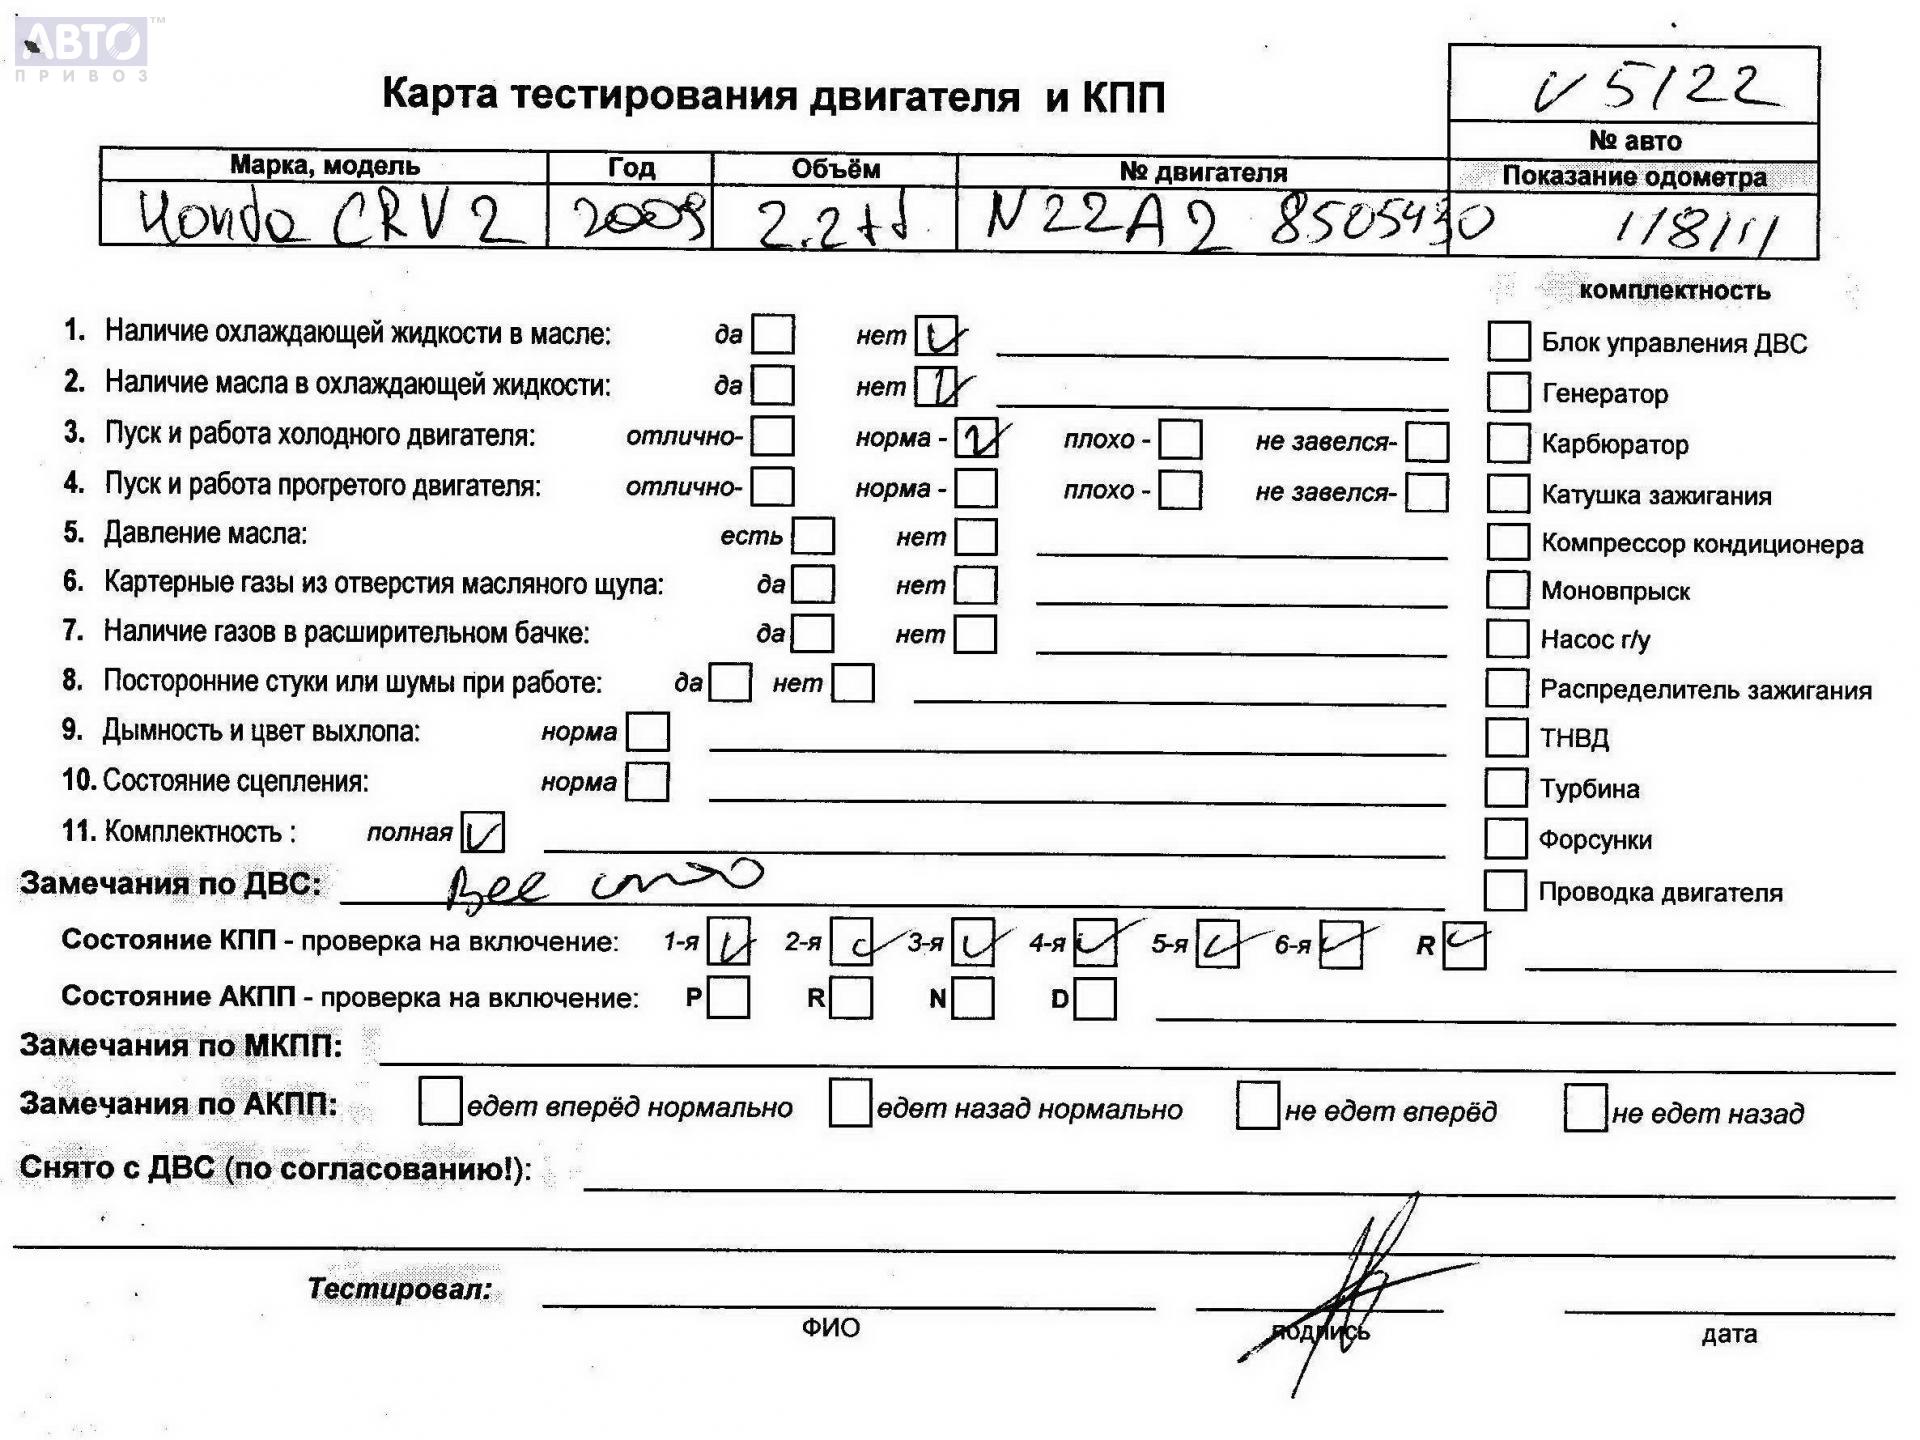 АВТО™
ПРИВОЗ
Карта тестирования двигателя и КПП
V5122
№ авто
Марка, модель Год Объём № двигателя Показание одометра
Honda CRV 2 2009 2.2td N22A2 8505430 118111
комплектность
1. Наличие охлаждающей жидкости в масле: да нет Блок управления ДВС
2. Наличие масла в охлаждающей жидкости: да нет Генератор
3. Пуск и работа холодного двигателя: отлично- норма - плохо - не завелся- Карбюратор
4. Пуск и работа прогретого двигателя: отлично- норма - плохо - не завелся- Катушка зажигания
5. Давление масла: есть нет Компрессор кондиционера
6. Картерные газы из отверстия масляного щупа: да нет Моновпрыск
7. Наличие газов в расширительном бачке: да нет Насос г/у
8. Посторонние стуки или шумы при работе: да нет Распределитель зажигания
9. Дымность и цвет выхлопа: норма ТНВД
10. Состояние сцепления: норма Турбина
11. Комплектность : полная Форсунки
Замечания по ДВС: Все Проводка двигателя
Состояние КПП - проверка на включение: 1-я 2-я 3-я 4-я 5-я 6-я R
Состояние АКПП - проверка на включение: P R N D
Замечания по МКПП:
Замечания по АКПП: едет вперёд нормально едет назад нормально не едет вперёд не едет назад
Снято с ДВС (по согласованию!):
Тестировал:
ФИО подпись дата